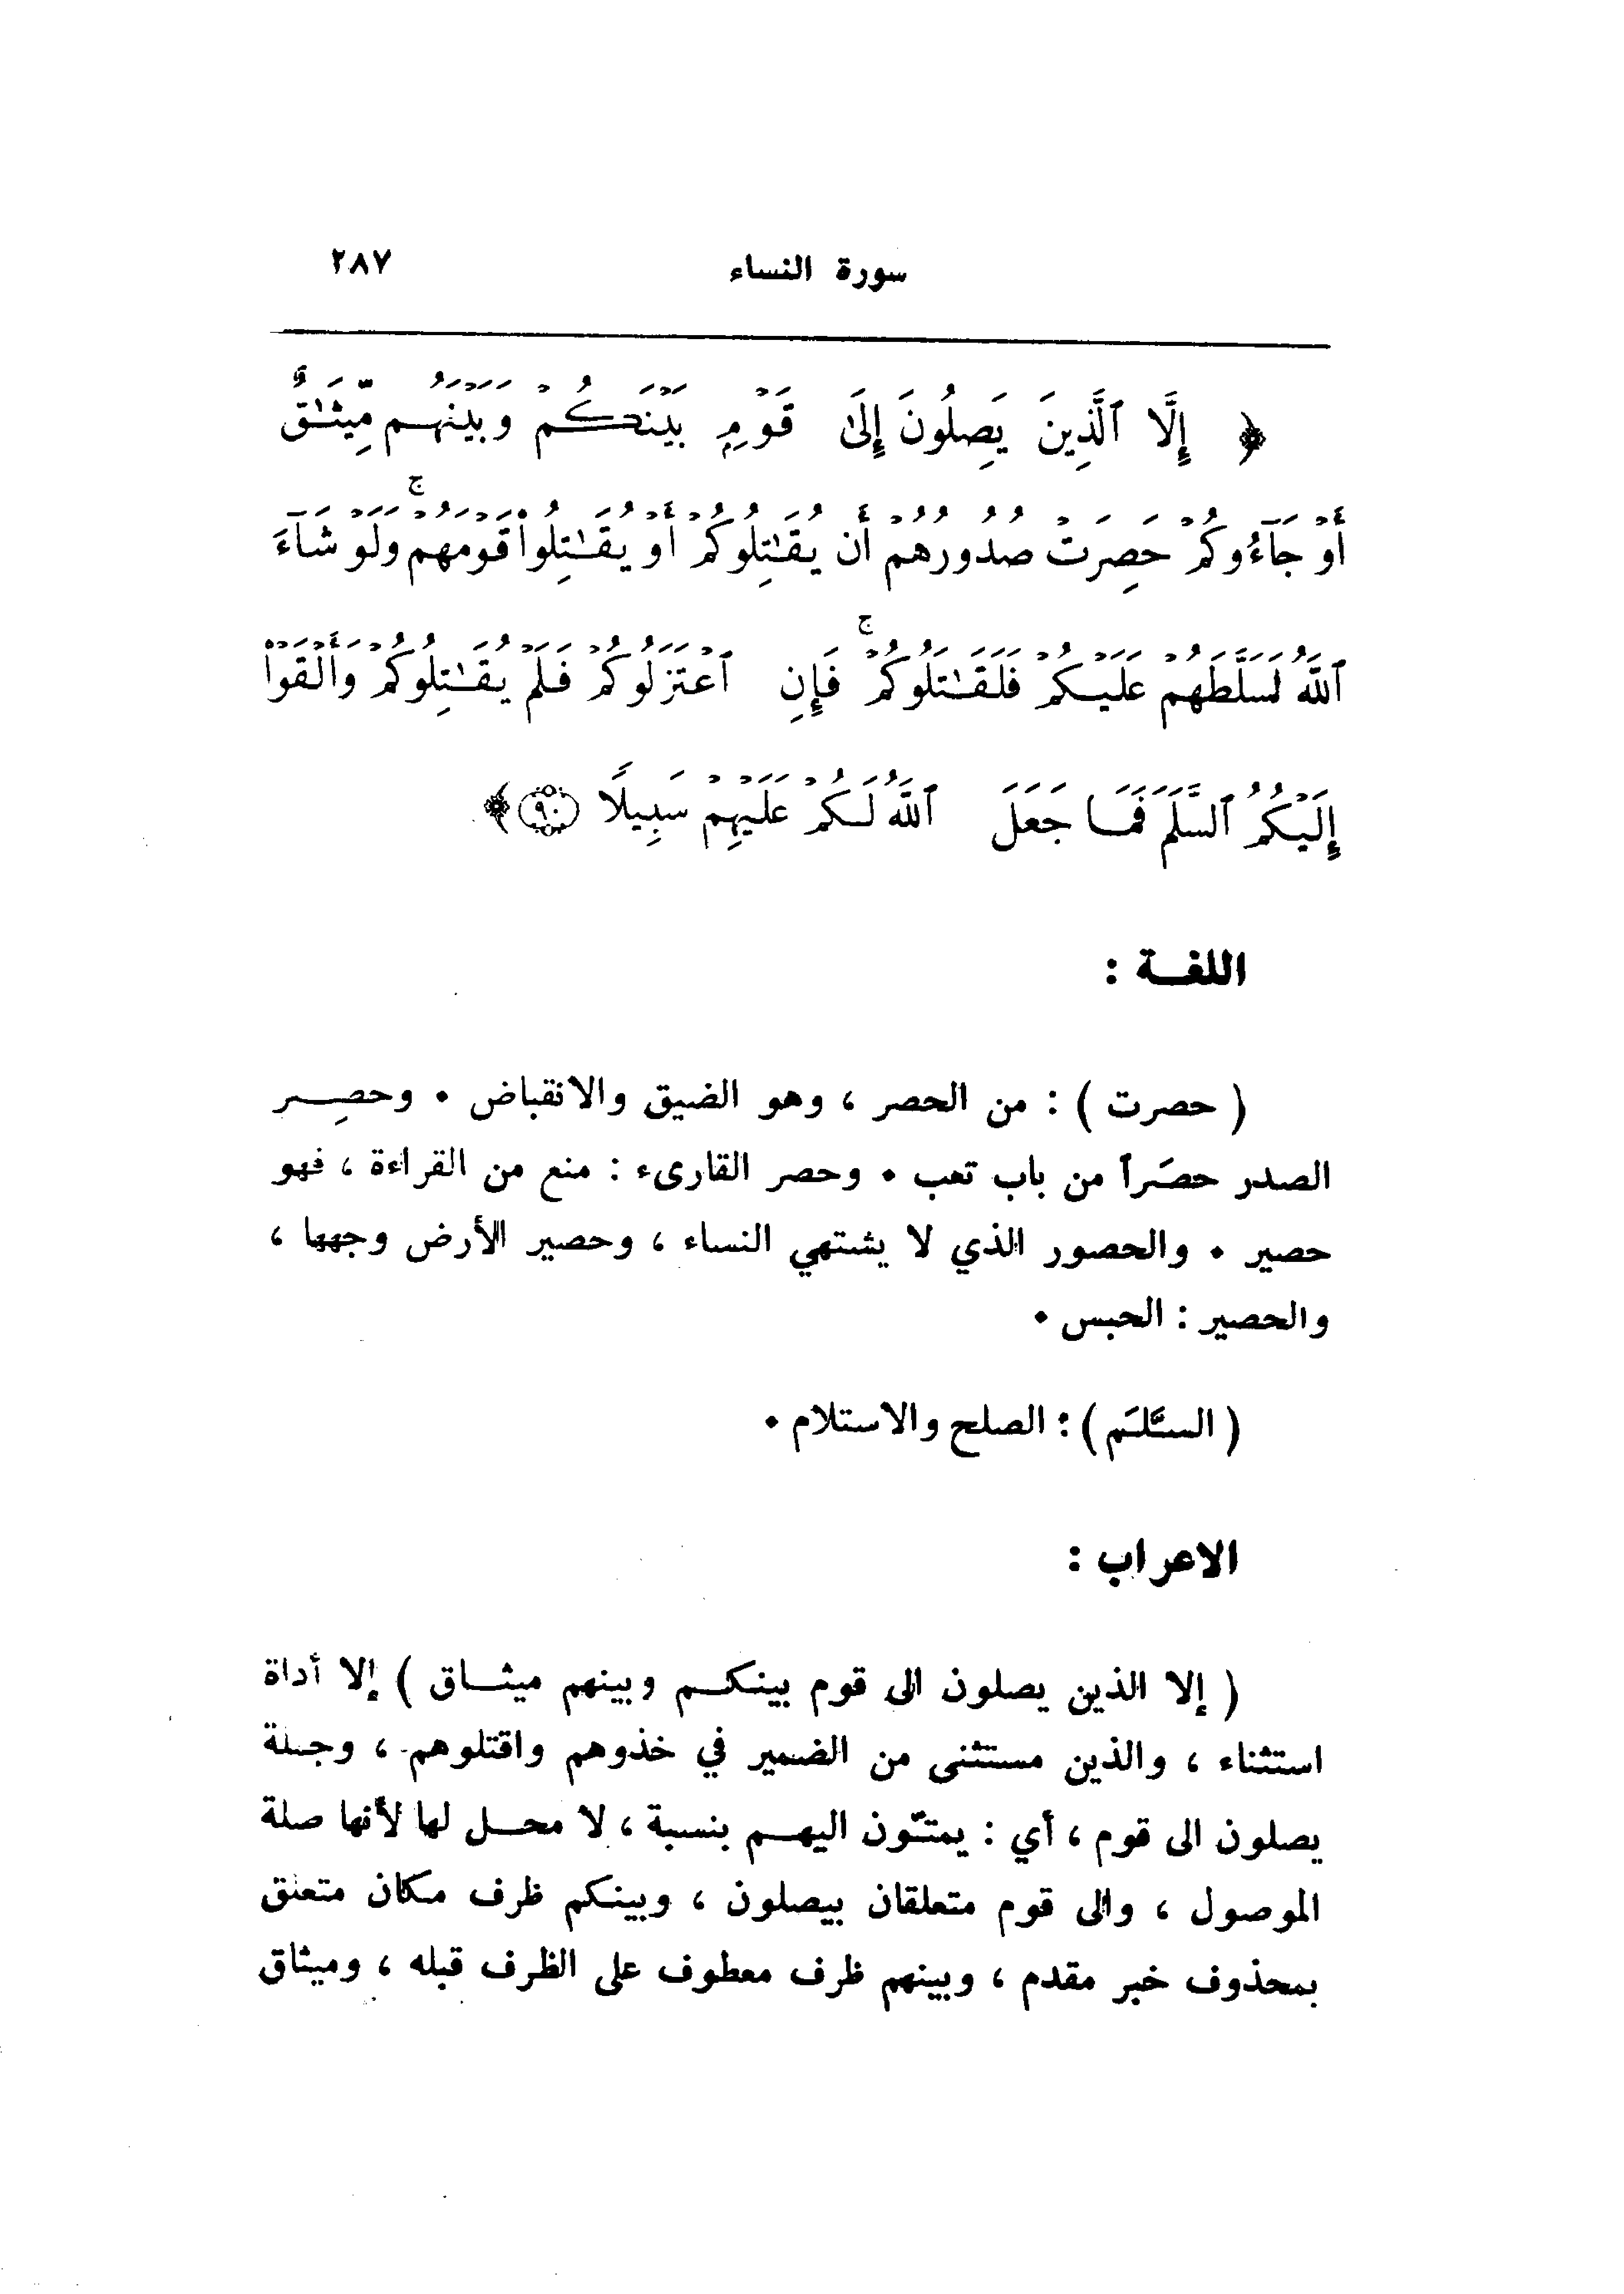 سورة النساء ٢٨٧
﴿ إِلَّا ٱلَّذِينَ يَصِلُونَ إِلَىٰ قَوْمٍۭ بَيْنَكُمْ وَبَيْنَهُم مِّيثَٰقٌ
أَوْ جَآءُوكُمْ حَصِرَتْ صُدُورُهُمْ أَن يُقَٰتِلُوكُمْ أَوْ يُقَٰتِلُوا۟ قَوْمَهُمْ ۚ وَلَوْ شَآءَ
ٱللَّهُ لَسَلَّطَهُمْ عَلَيْكُمْ فَلَقَٰتَلُوكُمْ ۚ فَإِنِ ٱعْتَزَلُوكُمْ فَلَمْ يُقَٰتِلُوكُمْ وَأَلْقَوْا۟
إِلَيْكُمُ ٱلسَّلَمَ فَمَا جَعَلَ ٱللَّهُ لَكُمْ عَلَيْهِمْ سَبِيلًا ٩٠ ﴾
اللغة :
( حصرت ) : من الحصر ، وهو الضيق والانقباض . وحصِر
الصدر حصَراً من باب تعب . وحصر القارىء : منع من القراءة ، فهو
حصير . والحصور الذي لا يشتهي النساء ، وحصير الأرض وجهها ،
والحصير : الحبس .
( السَّلَم ) : الصلح والاستلام .
الاعراب :
( إلا الذين يصلون الى قوم بينكم وبينهم ميثاق ) إلا أداة
استثناء ، والذين مستثنى من الضمير في خذوهم واقتلوهم ، وجملة
يصلون الى قوم ، أي : يمتّون اليهم بنسبة ، لا محل لها لأنها صلة
الموصول ، والى قوم متعلقان بيصلون ، وبينكم ظرف مكان متعلق
بمحذوف خبر مقدم ، وبينهم ظرف معطوف على الظرف قبله ، وميثاق